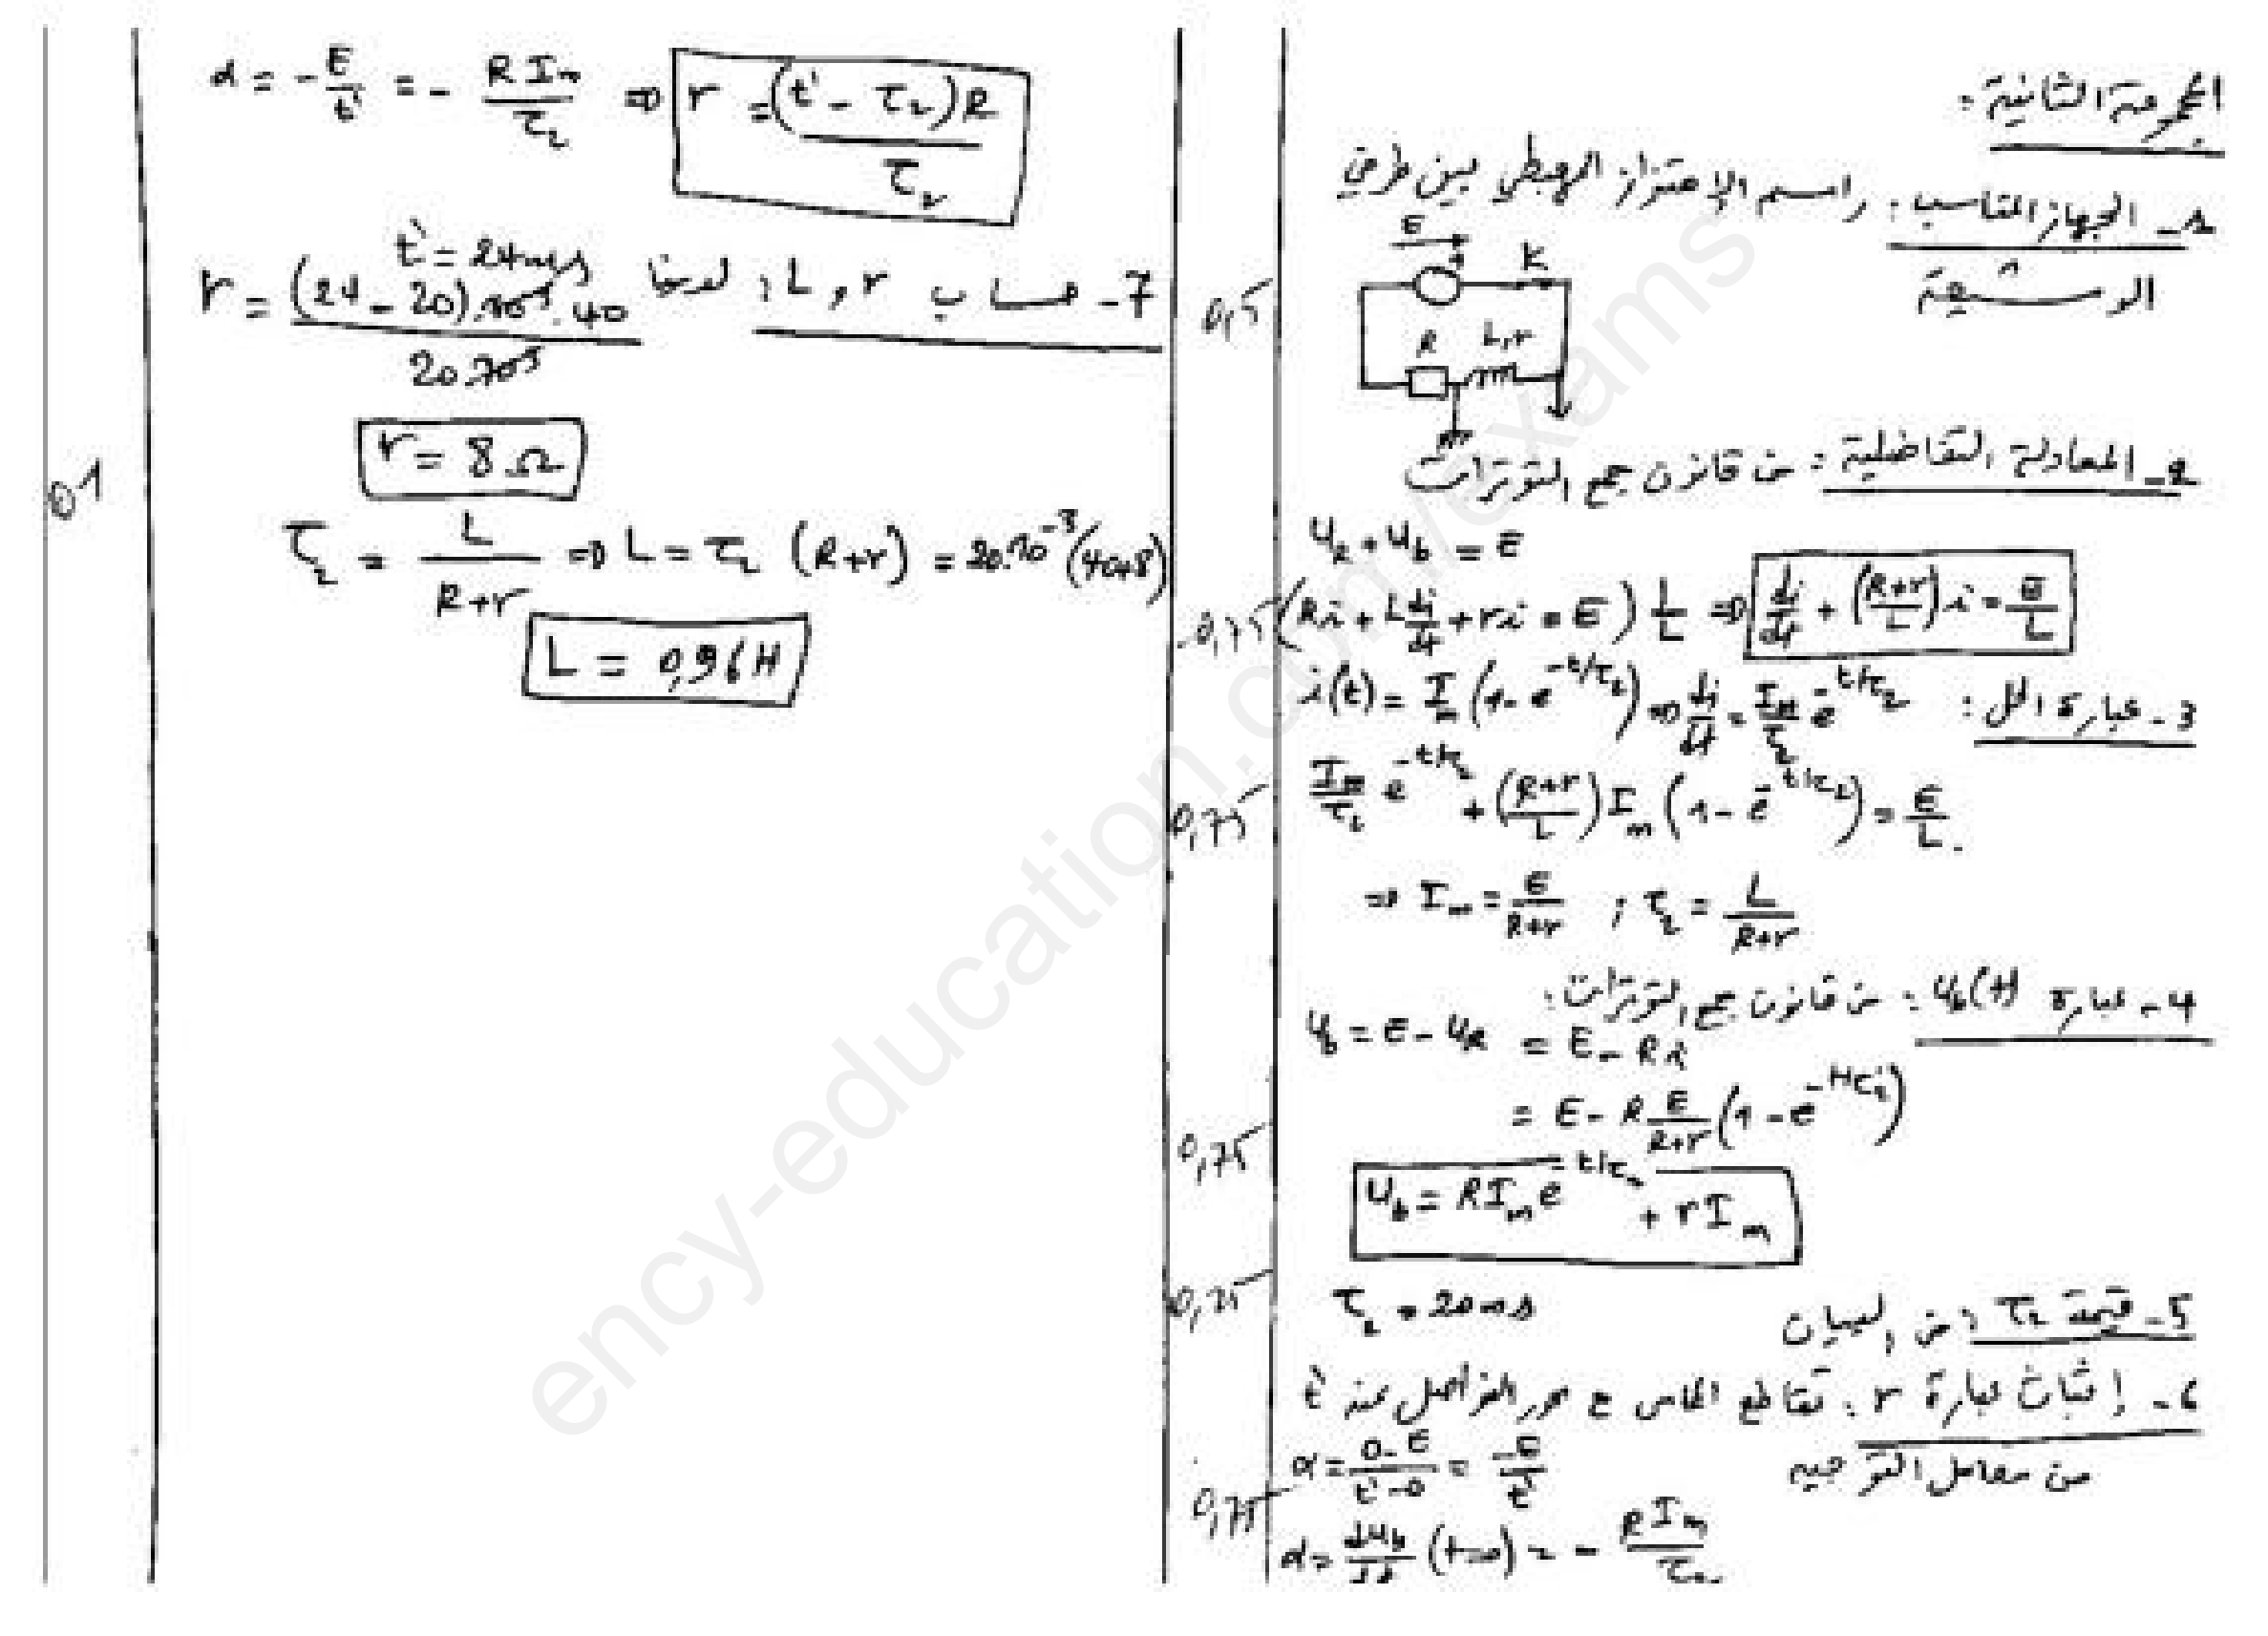 المجموعة الثانية:
1- الجهاز المناسب: راسم الاهتزاز المهبطي بين طرفي
الوشيعة
E
K
R L,r
0,5
2- المعادلة التفاضلية: من قانون جمع التوترات
u_R + u_b = E
0,75 (Ri + L di/dt + ri = E) 1/L ⇒ di/dt + ((R+r)/L) i = E/L
3- عبارة الحل: i(t) = I_m (1 - e^(-t/τ₂)) ⇒ di/dt = I_m/τ₂ e^(-t/τ₂)
0,75 I_m/τ₂ e^(-t/τ₂) + ((R+r)/L) I_m (1 - e^(-t/τ₂)) = E/L
⇒ I_m = E/(R+r) ; τ₂ = L/(R+r)
4- عبارة u_b(t): من قانون جمع التوترات:
u_b = E - u_R = E - Ri
= E - R E/(R+r) (1 - e^(-t/τ₂))
0,75
u_b = R I_m e^(-t/τ₂) + r I_m
5- قيمة τ₂: من البيان τ₂ = 20ms
6- إثبات عبارة r: تقاطع المماس مع محور الفواصل عند t'
من معامل التوجيه
α = (0-E)/(t'-0) = -E/t'
0,75
α = du_b/dt (t=0) = - R I_m/τ₂
α = -E/t' = - R I_m/τ₂ ⇒ r = (t' - τ₂)R/τ₂
7- حساب L, r: لدينا t' = 24ms
r = (24 - 20).10⁻³.40/20.10⁻³
r = 8 Ω
01
τ₂ = L/(R+r) ⇒ L = τ₂ (R+r) = 20.10⁻³(40+8)
L = 0,96 H
ency-education.com/exams